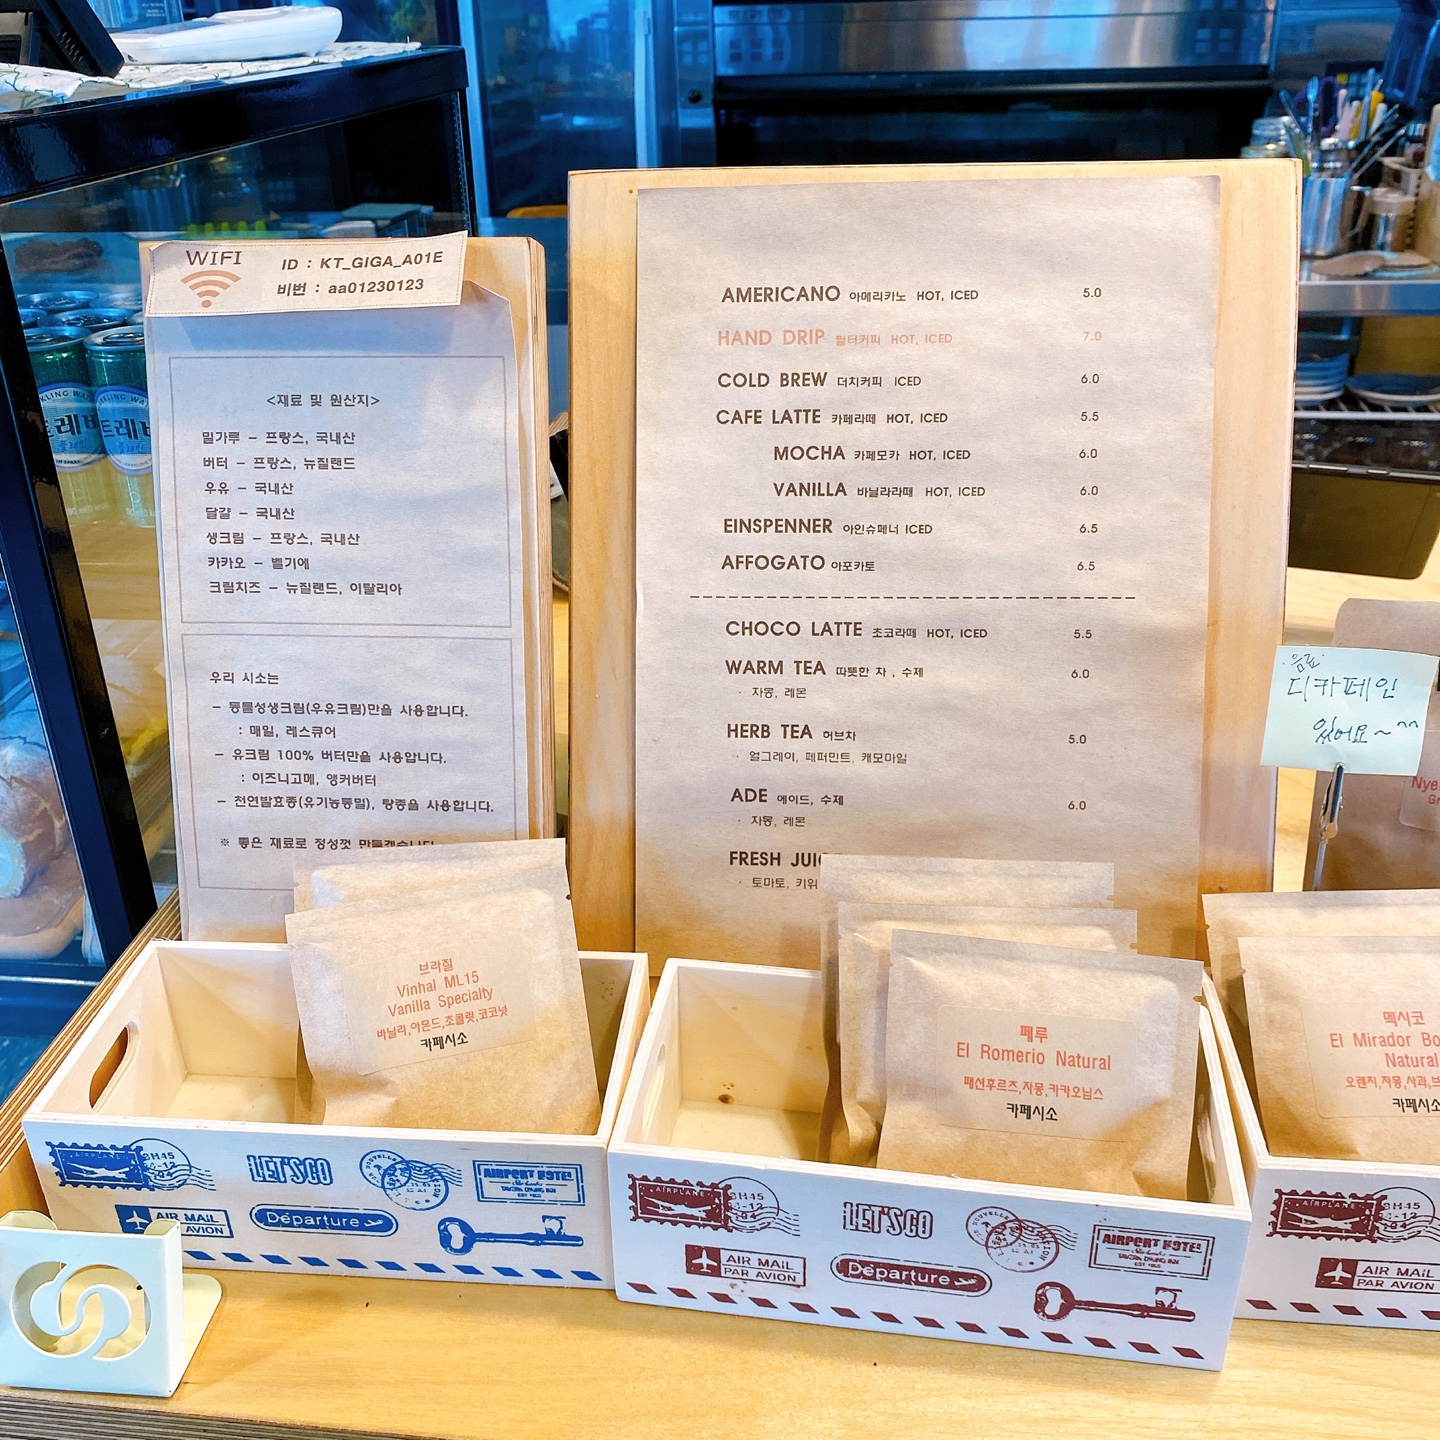 WIFI
ID : KT_GIGA_A01E
비번 : aa01230123
<재료 및 원산지>
밀가루 – 프랑스, 국내산
버터 – 프랑스, 뉴질랜드
우유 – 국내산
달걀 – 국내산
생크림 – 프랑스, 국내산
카카오 – 벨기에
크림치즈 – 뉴질랜드, 이탈리아
우리 시소는
– 동물성생크림(우유크림)만을 사용합니다.
: 매일, 레스큐어
– 유크림 100% 버터만을 사용합니다.
: 이즈니고메, 앵커버터
– 천연발효종(유기농통밀), 탕종을 사용합니다.
※ 좋은 재료로 정성껏 만들겠습니다
AMERICANO 아메리카노 HOT, ICED 5.0
HAND DRIP 필터커피 HOT, ICED 7.0
COLD BREW 더치커피 ICED 6.0
CAFE LATTE 카페라떼 HOT, ICED 5.5
MOCHA 카페모카 HOT, ICED 6.0
VANILLA 바닐라라떼 HOT, ICED 6.0
EINSPENNER 아인슈페너 ICED 6.5
AFFOGATO 아포카토 6.5
CHOCO LATTE 초코라떼 HOT, ICED 5.5
WARM TEA 따뜻한 차 , 수제 6.0
· 자몽, 레몬
HERB TEA 허브차 5.0
· 얼그레이, 페퍼민트, 캐모마일
ADE 에이드, 수제 6.0
· 자몽, 레몬
FRESH JUIC
· 토마토, 키위
음료
디카페인
있어요~^^
브라질
Vinhal ML15
Vanilla Specialty
바닐라,아몬드,초콜릿,코코넛
카페시소
페루
El Romerio Natural
패션후르츠,자몽,카카오닙스
카페시소
멕시코
El Mirador Bo
Natural
오렌지,자몽,사과,브
카페시소
Nye
AIRPLANE
LET'S GO
AIRPORT HOTEL
AIR MAIL
PAR AVION
Departure
AIRPLANE
SH45
LET'S GO
AIRPORT HOTEL
AIR MAIL
PAR AVION
Departure
AIRPLANE
SH45
AIR MAIL
PAR AVION